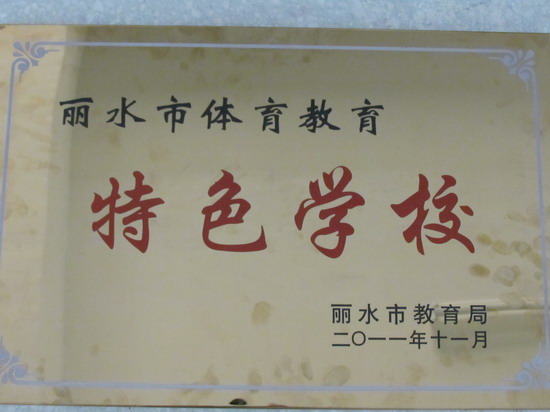 丽水市体育教育
特色学校
丽水市教育局
二〇一一年十一月